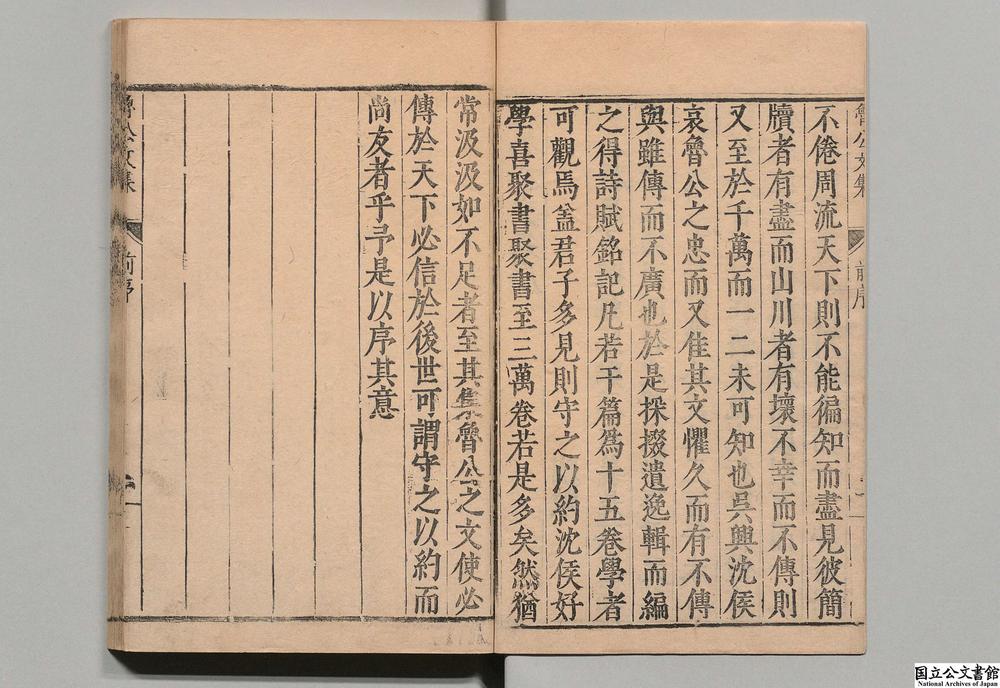 不倦周流天下則不能徧知而盡見彼簡
牘者有盡而山川者有壞不幸而不傳則
又至於千萬而一二未可知也吳興沈侯
哀魯公之忠而又佳其文懼久而有不傳
與雖傳而不廣也於是採掇遺逸輯而編
之得詩賦銘記凡若干篇為十五卷學者
可觀焉葢君子多見則守之以約沈侯好
學喜聚書聚書至三萬卷若是多矣然猶
常汲汲如不足者至其集魯公之文使必
傳於天下必信於後世可謂守之以約而
尚友者乎予是以序其意
魯公文集
前序
国立公文書館
National Archives of Japan